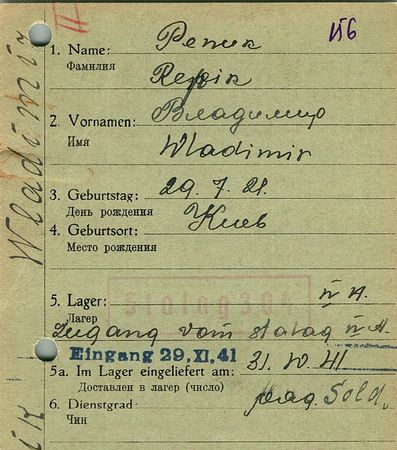 156
1. Name: Репик
Фамилия Repik
2. Vornamen: Владимир
Имя Wladimir
3. Geburtstag: 29. 7. 21.
День рождения
4. Geburtsort: Киев
Место рождения
5. Lager: IV A.
Лагер
Stalag 304
Zugang vom Stalag IV A.
Eingang 29. XI. 41
5a. Im Lager eingeliefert am: 31. 10. 41
Доставлен в лагер (число)
6. Dienstgrad: Sold.
Чин
Wladimir